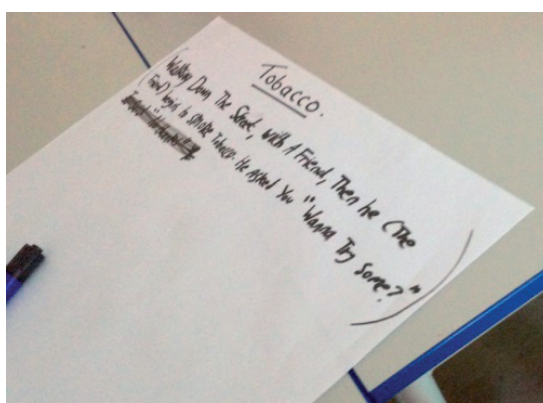 Tobacco.
(Walking Down The Street, with A Friend, Then he (The
Friend) begin to smoke Tobacco. He Asked You "Wanna Try Some?")